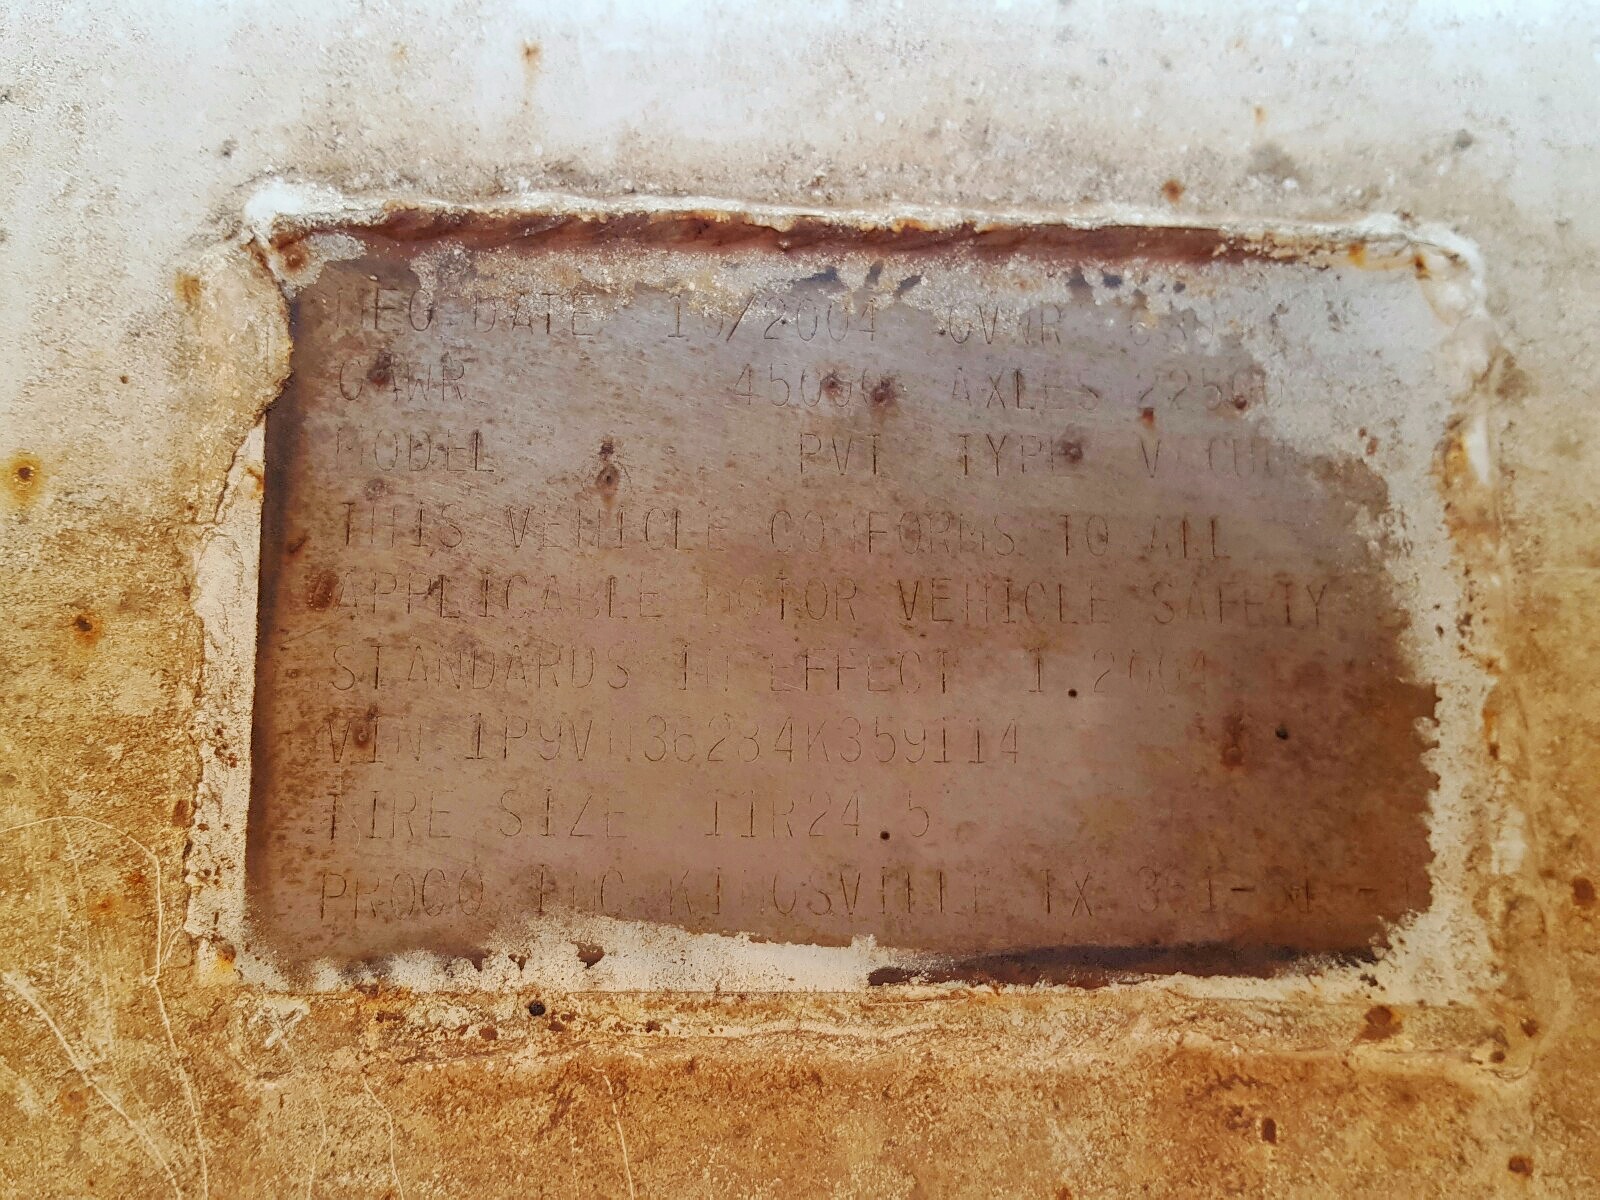 MFG DATE 10/2004 GVWR
GAWR 45000 AXLES 22500
MODEL PVT TYPE VACUUM
THIS VEHICLE CONFORMS TO ALL
APPLICABLE MOTOR VEHICLE SAFETY
STANDARDS IN EFFECT 1.2004
VIN
TIRE SIZE 11R24.5
PROCO INC KINGSVILLE TX